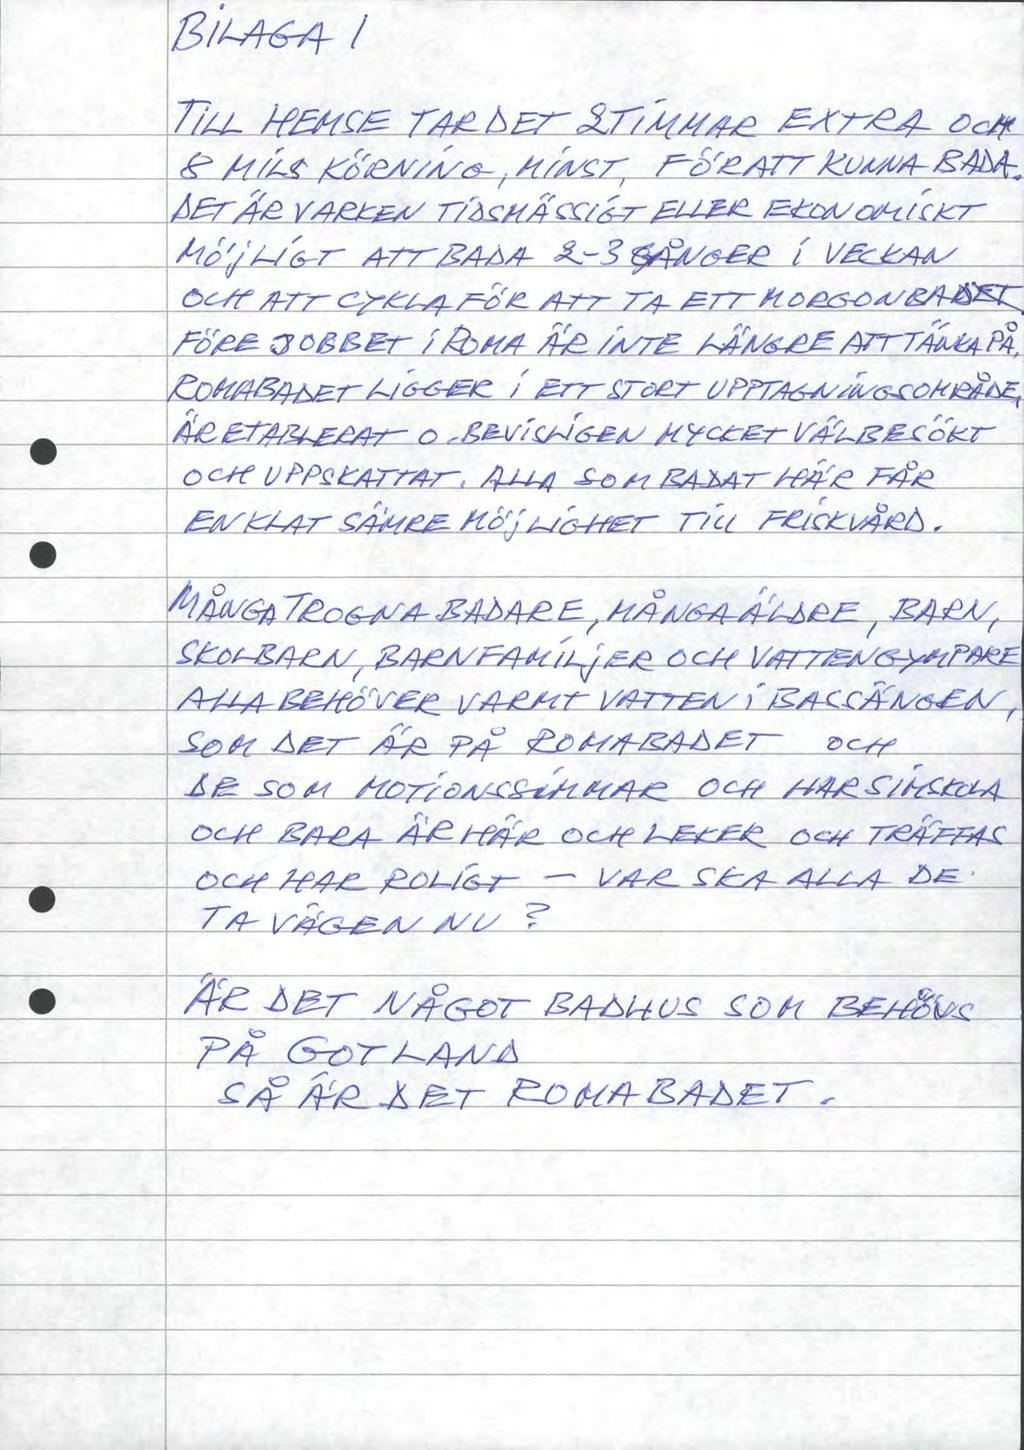 BILAGA 1
TILL HEMSE TAR DET 2 TIMMAR EXTRA OCH
8 MILS KÖRNING, MINST, FÖR ATT KUNNA BADA.
DET ÄR VARKEN TIDSMÄSSIGT ELLER EKONOMISKT
MÖJLIGT ATT BADA 2-3 GÅNGER I VECKAN
OCH ATT CYKLA FÖR ATT TA ETT MORGONBADET
FÖRE JOBBET I ROMA ÄR INTE LÄNGRE ATT TÄNKA PÅ.
ROMABADET LIGGER I ETT STORT UPPTAGNINGSOMRÅDE,
ÄR ETABLERAT O. BEVISLIGEN MYCKET VÄLBESÖKT
OCH UPPSKATTAT. ALLA SOM BADAT HÄR FÅR
EN KLAT SÄMRE MÖJLIGHET TILL FRISKVÅRD.
MÅNGA TROGNA BADARE, MÅNGA ÄLDRE, BARN,
SKOLBARN, BARNFAMILJER OCH VATTENGYMPARE
ALLA BEHÖVER VARMT VATTEN I BASSÄNGEN,
SOM DET ÄR PÅ ROMABADET OCH
DE SOM MOTIONSSIMMAR OCH HAR SIMSKOLA
OCH BARA ÄR HÄR OCH LEKER OCH TRÄFFAS
OCH HAR ROLIGT - VAR SKA ALLA DE
TA VÄGEN NU ?
ÄR DET NÅGOT BADHUS SOM BEHÖVS
PÅ GOTLAND
SÅ ÄR DET ROMABADET.